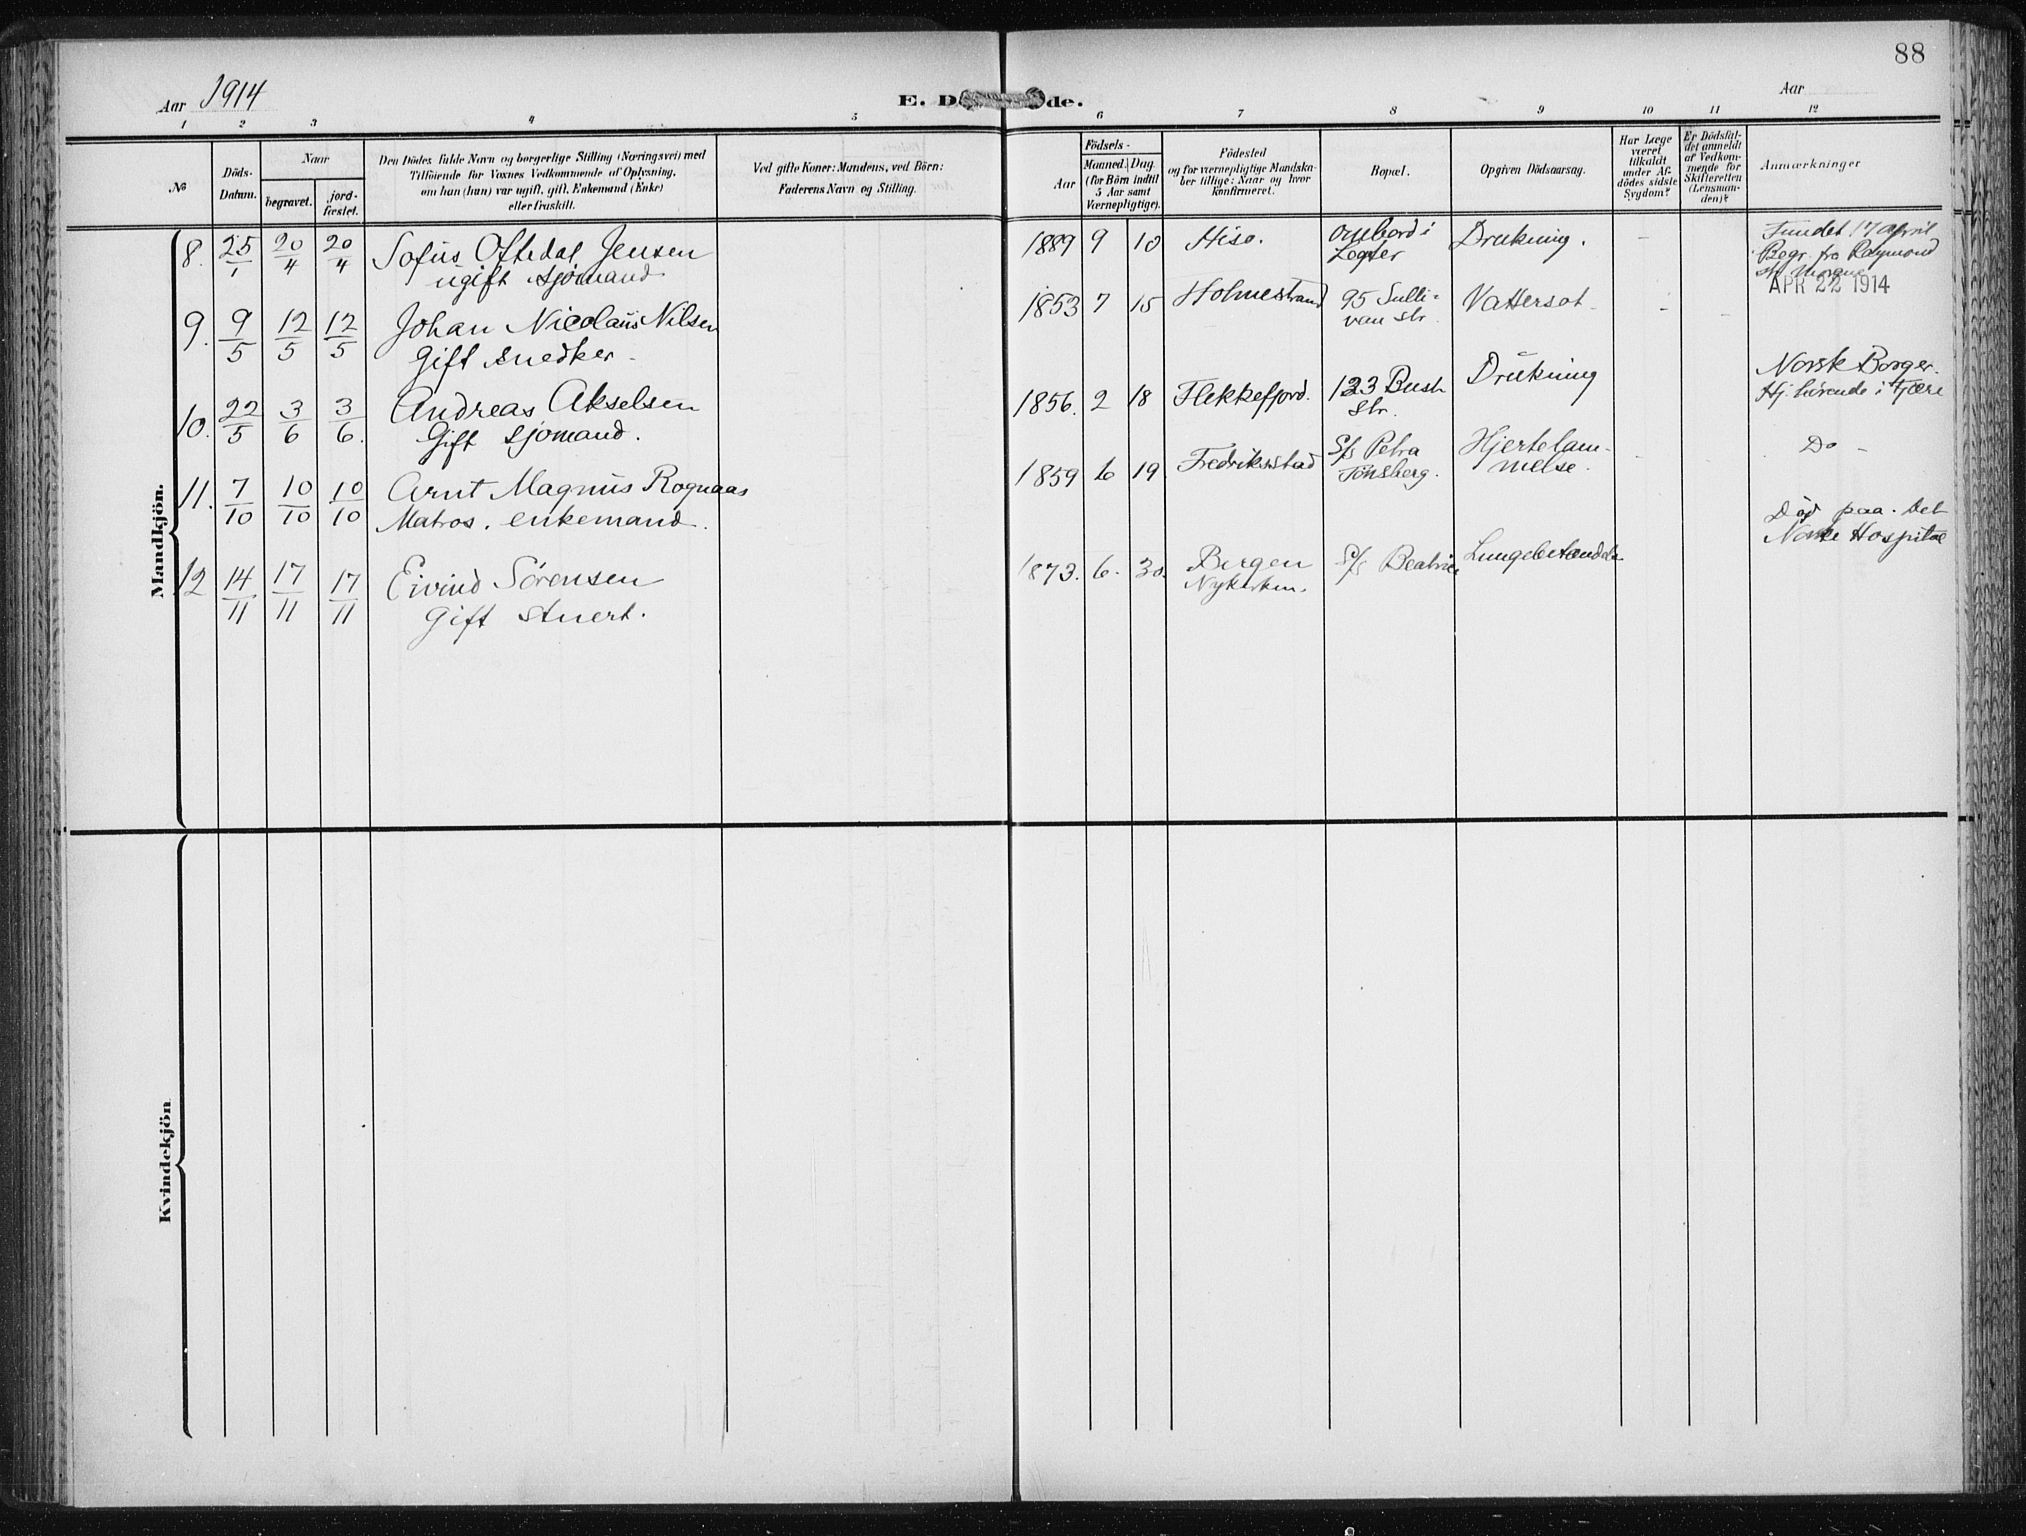 88
Aar 1914
E. D de.
Aar
1 2 3 4 5 6 7 8 9 10 11 12
No
Döds-
Datum.
Naar
begravet.
jord-
fæstet.
Den Dödes fulde Navn og borgerlige Stilling (Næringsvei) med
Tilföiende for Voxnes Vedkommende af Oplysning,
om han (hun) var ugift, gift, Enkemand (Enke)
eller fraskilt.
Ved gifte Koner: Mandens, ved Börn:
Faderens Navn og Stilling.
Födsels-
Aar
Maaned. Dag.
(for Börn indtil
5 Aar samt
Værnepligtige).
Födested
og for værnepligtige Mandska-
ber tillige: Naar og hvor
konfirmeret.
Bopæl.
Opgiven Dödsaarsag.
Har Læge
været
tilkaldt
under Af-
dödes sidste
Sygdom?
Er Dödsfal-
det anmeldt
af Vedkom-
mende for
Skifteretten
(Lensman-
den)?
Anmærkninger
Mandkjön.
8. 25/1 20/4 20/4 Sofus Oftedal Jensen
ugift sjømand
1889 9 10 Hisø. ombord i Drukning. -
Fundet 17 April
Begr. fra Raymond
str Morgue
APR 22 1914
9. 9/5 12/5 12/5 Johan Nicolaus Nilsen
Gift snedker -
1853 7 15 Holmestrand 95 Sulli-
van str. Vattersot - - -
10. 22/5 3/6 3/6. Andreas Akselsen
Gift sjømand.
1856. 2 18 Flekkefjord. 123 Bush
Str. Drukning
Norsk Borger.
Hj. hørende i Fjære
11. 7/10 10/10 10/10 Arnt Magnus Rognaas
Matros. enkemand.
1859 6 19. Fredriksstad S/s Petra
Tønsberg. Hjertelam-
melse. -
Do -
12 14/11 17/11 17/11 Eivind Sörensen
gift stuert.
1873. 6. 30. Bergen
Nykirken. S/s Beatrice
Død paa. Det
Norske Hospital
Kvindekjön